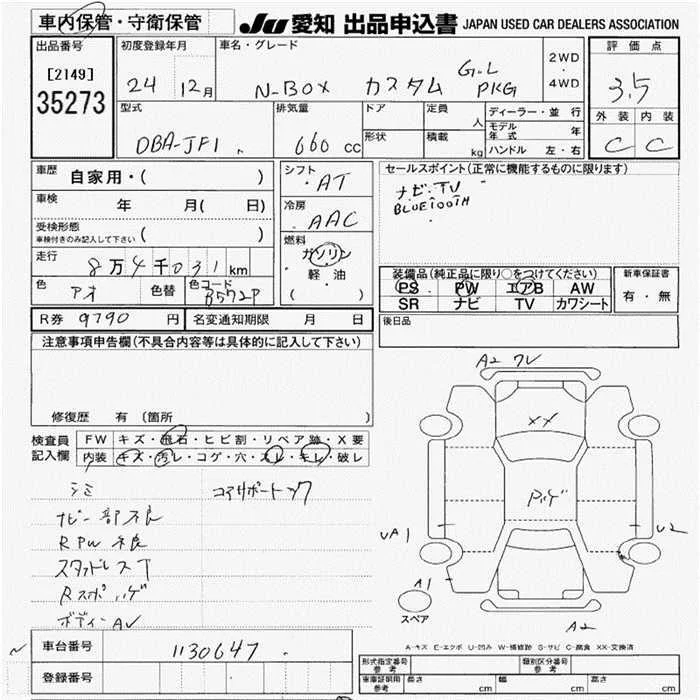 車内保管・守衛保管
JU 愛知 出品申込書 JAPAN USED CAR DEALERS ASSOCIATION
出品番号
[2149]
35273
初度登録年月
24 12月
車名・グレード
N-BOX カスタム G・L PKG
2WD
・
4WD
評価点
3.5
外装 内装
C C
型式
DBA-JF1
排気量
660 cc
ドア
形状
定員
人
積載
kg
ディーラー・並行
モデル年式 年
ハンドル 左・右
車歴
自家用・( )
車検
年 月( 日)
受検形態
車検付きのみ記入して下さい ( )
走行
8万4千031km
色
アオ
色替
色コード
B572P
シフト
・AT
冷房
AAC
燃料
ガソリン
・
軽油
( )
セールスポイント(正常に機能するものに限ります)
ナビ・TV
BLUETOOTH
装備品(純正品に限り○をつけてください)
PS PW エアB AW
SR ナビ TV カワシート
新車保証書
有・無
R券 9790 円
名変通知期限 月 日
後日品
注意事項申告欄(不具合内容等は具体的に記入して下さい)
修復歴 有 (箇所
検査員
記入欄
FW キズ・飛石・ヒビ割・リペア跡・X要
内装 キズ・汚レ・コゲ・穴・スレ・キレ・破レ
シミ
コアサポート
ナビ一部不良
RPW不良
スタッドレスT
ボディーAU
A2 ワレ
XX
UA1
U2
A1
スペア
A2
車台番号
1130647
登録番号
A-キズ E-エクボ U-凹み W-補修跡 S-サビ C-腐食 XX-交換済
形式指定番号
参考
類別区分番号
参考
車庫証明用
参考
長さ cm
幅 cm
高さ cm